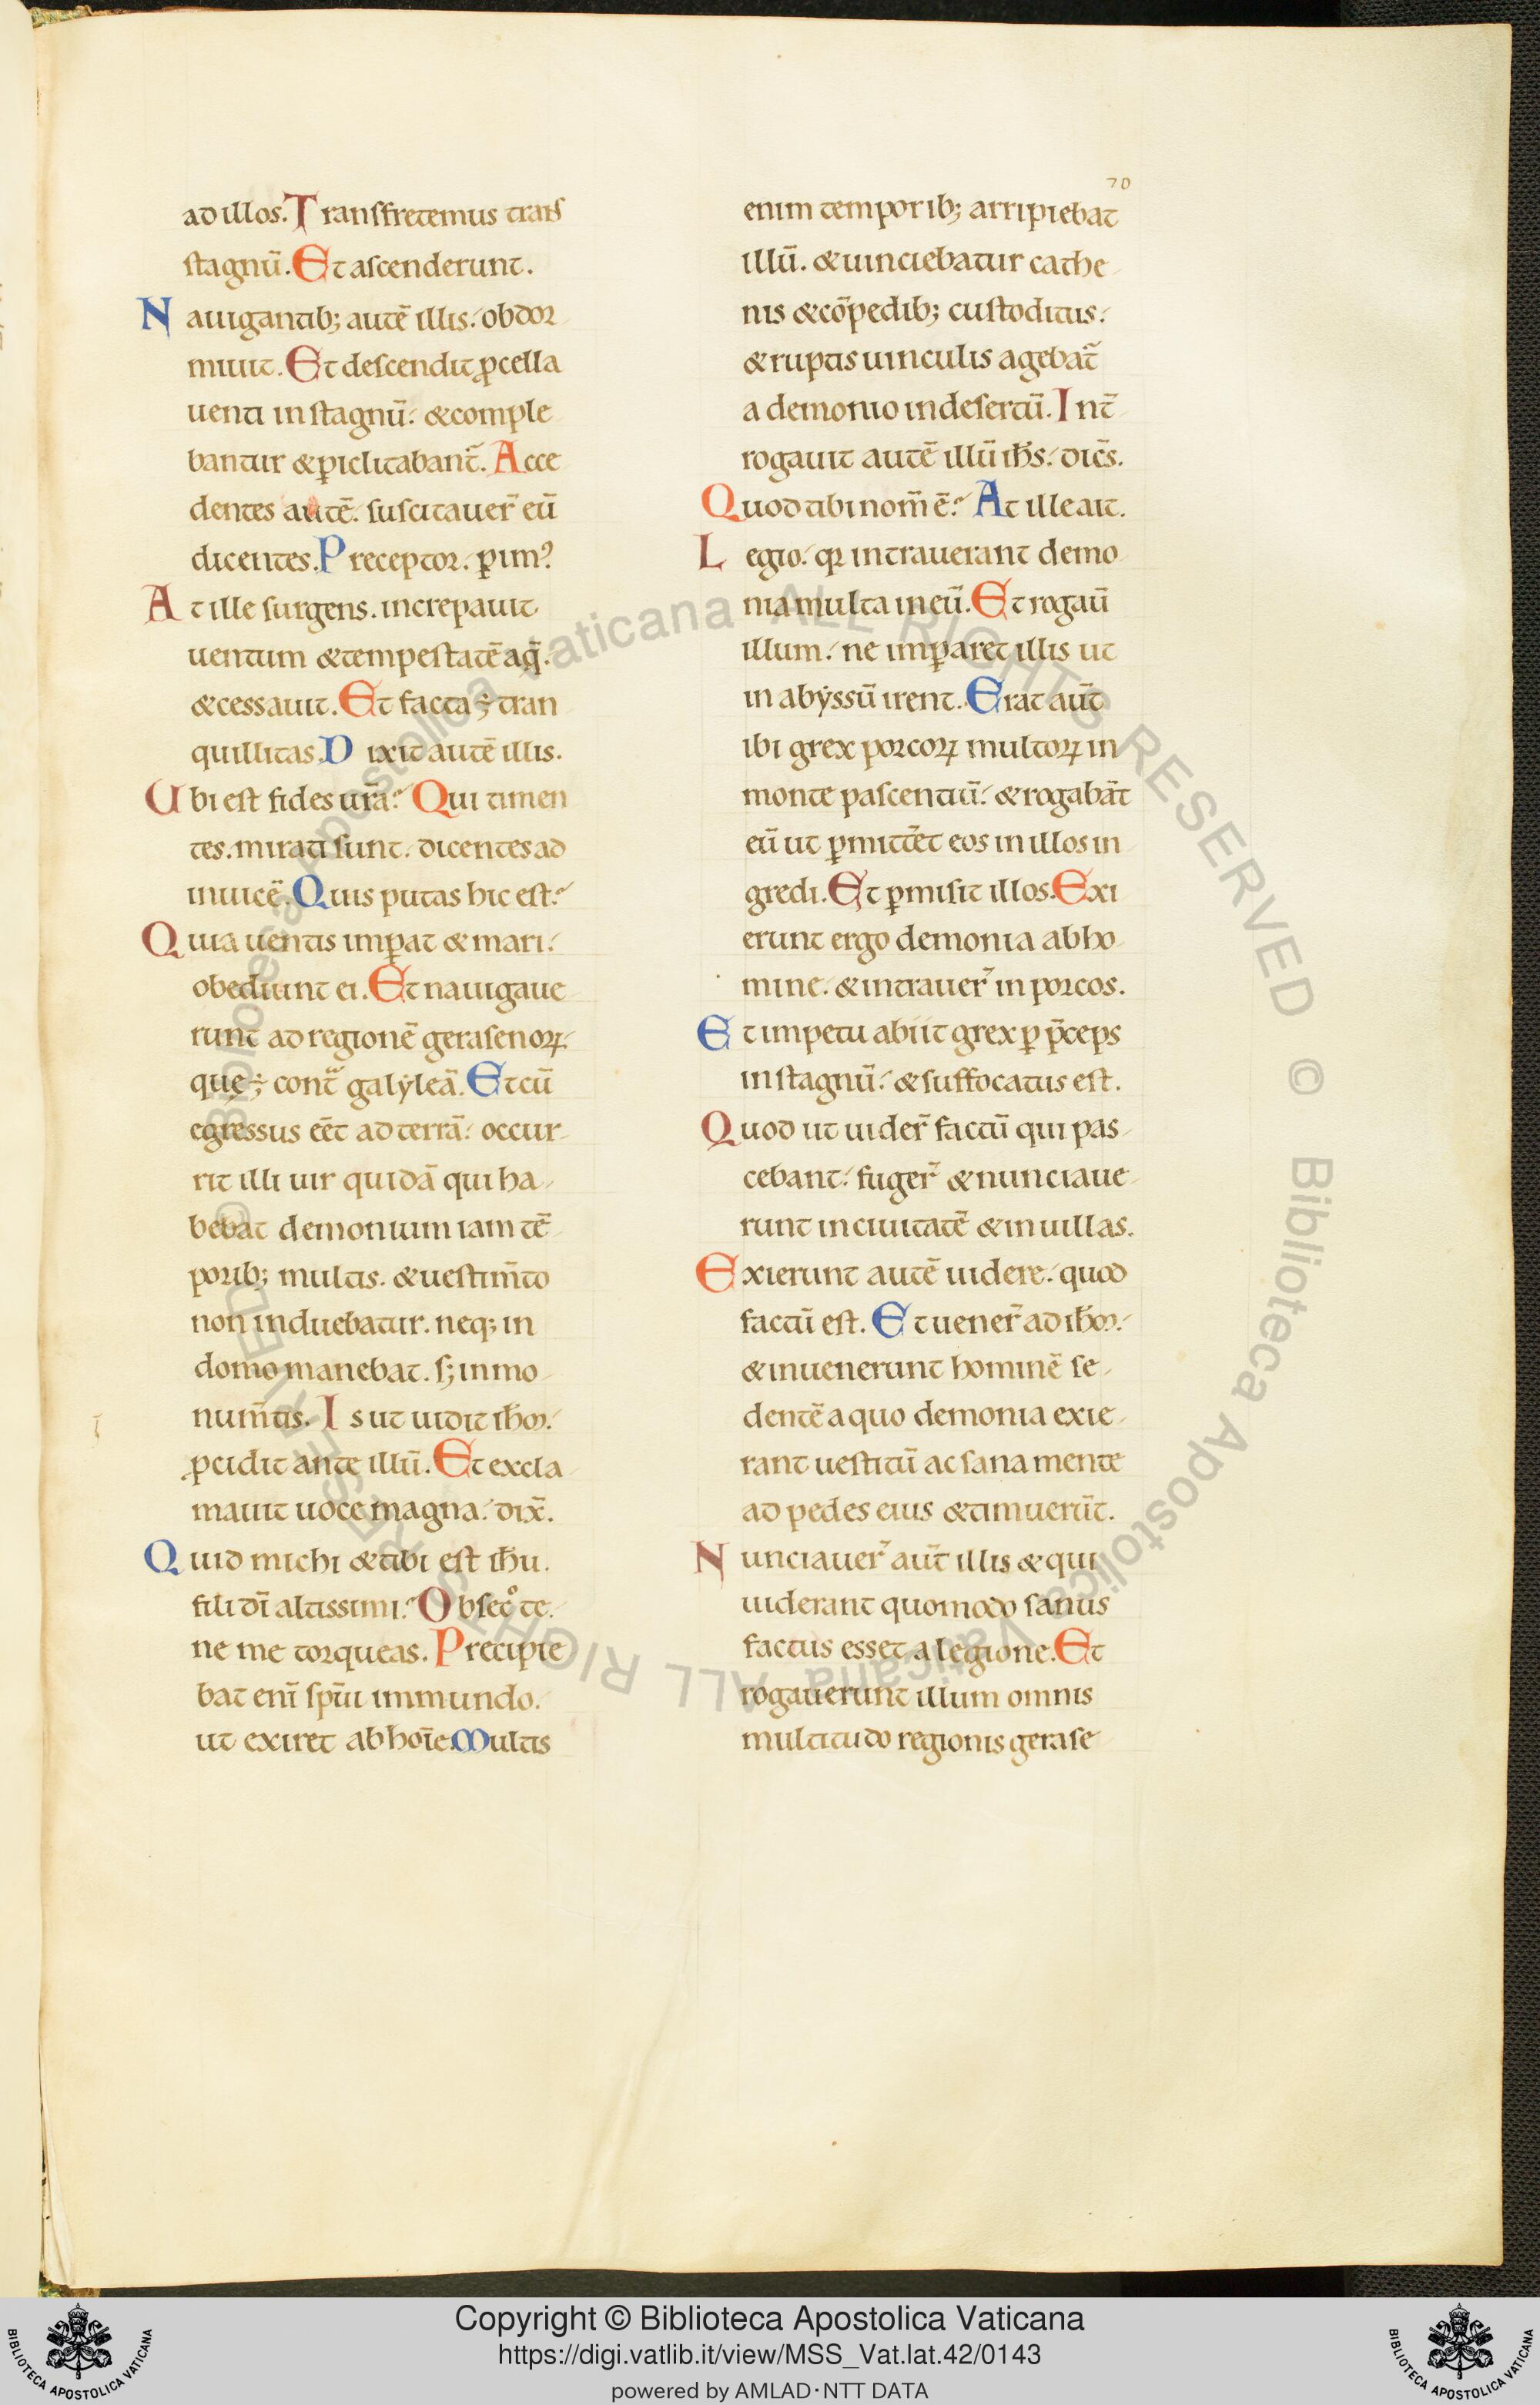 70
ad illos. Transfretemus trans
stagnū. Et ascenderunt.
Nauigantib; autē illis. obdor
miuit. Et descendit ꝓcella
uenti in stagnū. & comple
bantur & ꝑiclitabant̄. Acce
dentes autē. suscitauer̄ eū
dicentes. Preceptor. ꝑim?
At ille surgens. increpauit
uentum & tempestatē aq̄.
& cessauit. Et facta ÷ tran
quillitas. Dixit autē illis.
Ubi est fides ur̄a? Qui timen
tes. mirati sunt. dicentes ad
inuicē. Quis putas hic est?
Quia uentis imꝑat & mari.
obediunt ei. Et nauigaue
runt ad regionē gerasenoꝝ.
que ÷ cont̄ galẏleā. Et cū
egressus eēt ad terrā. occur-
rit illi uir quidā qui ha-
bebat demonium iam tē
porib; multis. & uestim̄to
non induebatur. neq; in
domo manebat. s; in mo
num̄tis. Is ut uidit ih̄m.
ꝓcidit ante illū. Et excla
mauit uoce magna. dix̄.
Quid michi & tibi est ih̄u.
fili dī altissimi? Obsecͦ te.
ne me torqueas. Precipie
bat enī sp̄ui immundo.
ut exiret ab hoīe. Multis
enim temporib; arripiebat
illū. & uinciebatur cathe
nis & cōpedib; custoditus.
& ruptis uinculis agebat̄
a demonio in desertū. Int̄
rogauit autē illū ih̄s. dicēs.
Quod tibi nom̄ ē? At ille ait.
Legio. qꝛ intrauerant demo
nia multa in eū. Et rogaū
illum. ne imꝑaret illis ut
in abẏssū irent. Erat aūt
ibi grex porcoꝝ multoꝝ in
monte pascentiū. & rogabāt
eū ut ꝑmitt̄et eos in illos in
gredi. Et ꝑmisit illos. Exi
erunt ergo demonia ab ho
mine. & intrauer̄ in porcos.
Et impetu abiit grex ꝑ p̄ceps
in stagnū. & suffocatus est.
Quod ut uider̄ factū qui pas-
cebant. fuger̄ & nunciaue
runt in ciuitatē & in uillas.
Exierunt autē uidere. quod
factū est. Et uener̄ ad ih̄m.
& inuenerunt hominē se-
dentē a quo demonia exie
rant uestitū ac sana mente
ad pedes eius & timuerūt.
Nunciauer̄ aūt illis & qui
uiderant quomodo sanus
factus esset a legione. Et
rogauerunt illum omnis
multitudo regionis gerase
Copyright © Biblioteca Apostolica Vaticana
https://digi.vatlib.it/view/MSS_Vat.lat.42/0143
powered by AMLAD·NTT DATA
BIBLIOTECA APOSTOLICA VATICANA
BIBLIOTECA APOSTOLICA VATICANA
© Biblioteca Apostolica Vaticana ALL RIGHTS RESERVED
© Biblioteca Apostolica Vaticana ALL RIGHTS RESERVED